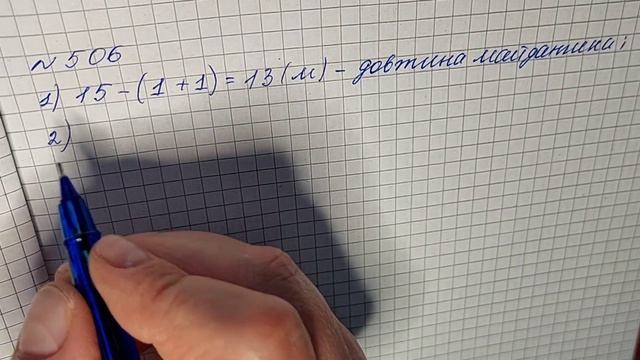 № 506
1) 15 - (1 + 1) = 13 (м) - довжина майданчика;
2)